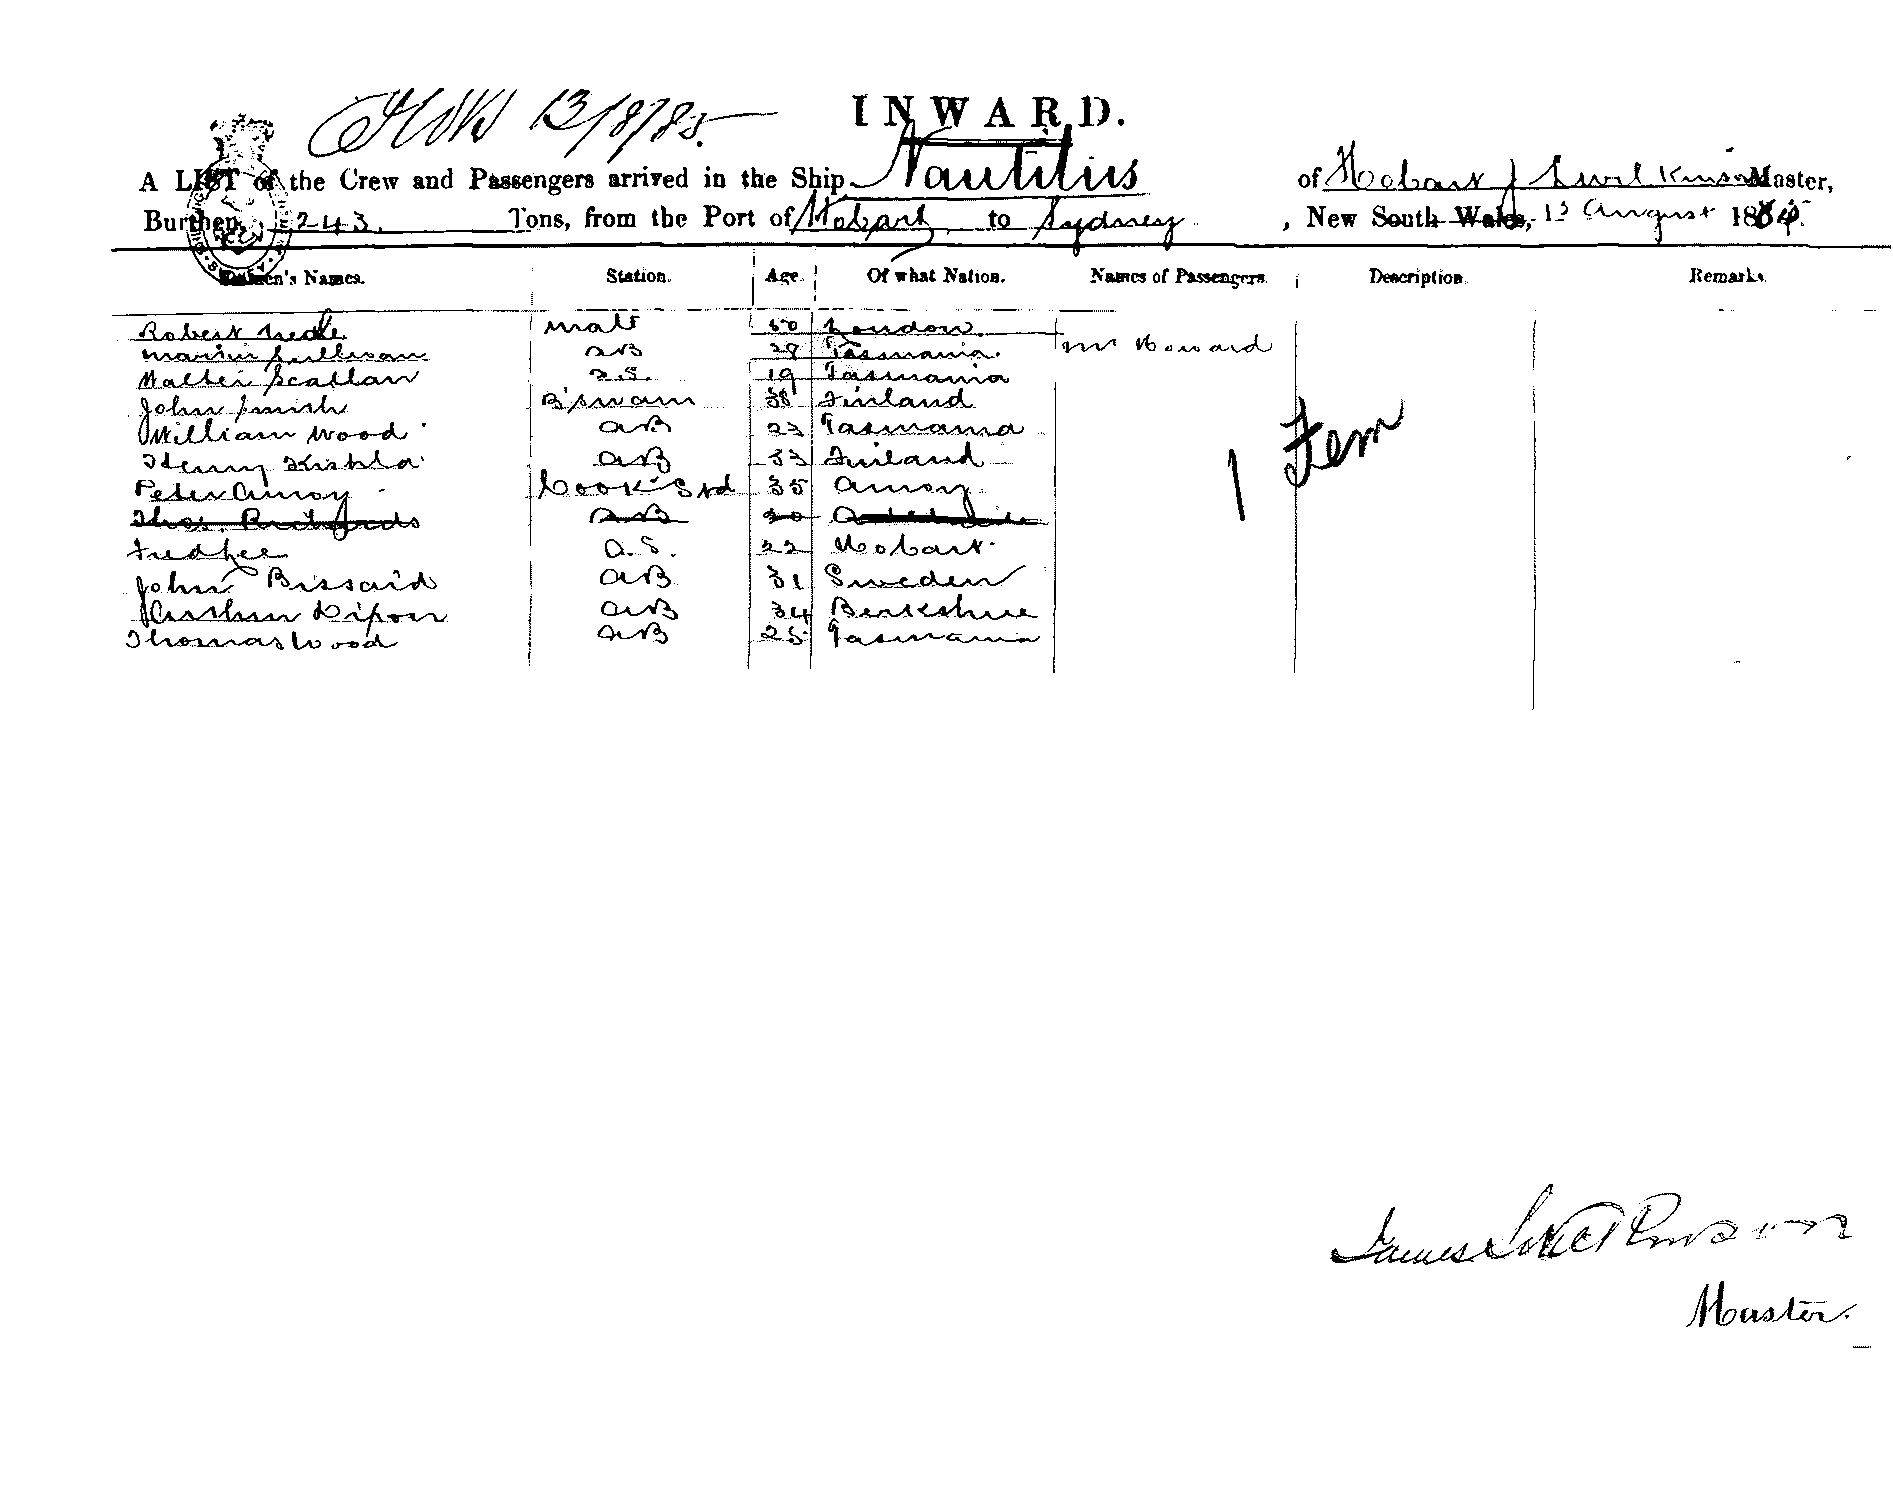 13/8/85.
INWARD.
A LIST of the Crew and Passengers arrived in the Ship Nautilus of Hobart J S Wilkinson Master,
Burthen, 243 Tons, from the Port of Hobart to Sydney, New South Wales, 13 August 188
Seamen's Names. Station. Age. Of what Nation. Names of Passengers. Description. Remarks.
Robert mate 50 London.
Martin Sullivan AB 28 Tasmania. Mr Howard
Walter Scallan O.S. 19 Tasmania
John Smith B'swain 38 Finland
William Wood AB 23 Tasmania
Henry AB 33 Finland
Peter Amoy Cook & Std 35 Amoy
Thos. Richards AB 20
Fred Lee O.S. 22 Hobart
John Bissaid AB 31 Sweden
Arthur Dixon AB 34 Berkshire
Thomas Wood AB 25 Tasmania
1 Fem
James S Wilkinson
Master.